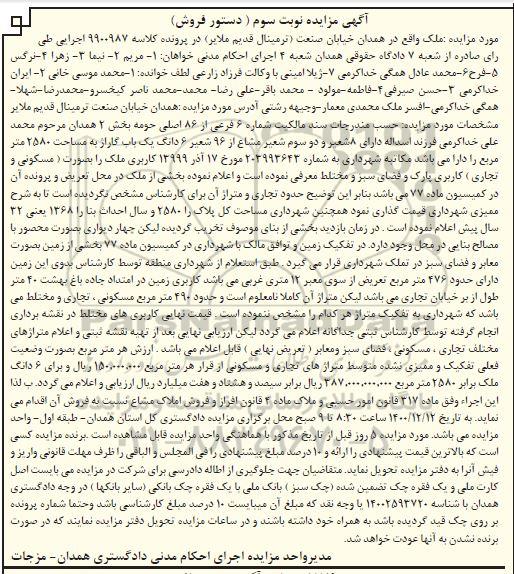 آگهی مزایده نوبت سوم ( دستور فروش)
مورد مزایده :ملک واقع در همدان خیابان صنعت (ترمینال قدیم ملایر) در پرونده کلاسه ۹۹۰۰۹۸۷ اجرایی طی
رای صادره از شعبه ۷ دادگاه حقوقی همدان شعبه ۴ اجرای احکام مدنی خواهان: ۱- مریم ۲- نیما ۳- زهرا ۴-نرگس
۵-فرح۶-محمد عادل همگی خداکرمی ۷-ژیلا امینی با وکالت فرزاد زارعی لطف خوانده: ۱-محمد موسی خانی ۲- ایران
خداکرمی ۳-حسن صیرفی۴-فاطمه-مولود - محمد باقر-علی رضا- محمد-محمد ناصر کیخسرو-محمدرضا-شهلا-
همگی خداکرمی-افسر ملک محمدی معمار-وجیهه رشتی آدرس مورد مزایده :همدان خیابان صنعت ترمینال قدیم ملایر
مشخصات مورد مزایده: حسب مندرجات سند مالکیت شماره ۶ فرعی از ۸۶ اصلی حومه بخش ۲ همدان مرحوم محمد
علی خداکرمی فرزند اسداله دارای ۸شعیر و دو سوم شعیر مشاع از ۹۶ شعیر ۶ دانگ یک باب گاراژ به مساحت ۲۵۸۰ متر
مربع را دارا می باشد مکانیه شهرداری به شماره ۲۰۳۹۹۳۶۴۳ مورخ ۱۷ آذر ۱۳۹۹۹ کاربری ملک را بصورت ( مسکونی و
تجاری ) کاربری پارک و فضای سبز و مختلط معرفی نموده است و اعلام نموده بخشی از ملک در محل تعریض و پرونده آن
در کمیسیون ماده ۷۷ می باشد بنابر این توضیح حدود تجاری و متراژ آن برای کارشناس مشخص نگردیده است تا به شرح
ممیزی شهرداری قیمت گذاری نمود همچنین شهرداری مساحت کل پلاک را ۲۵۸۰ و سال احداث بنا را ۱۳۶۸ یعنی ۳۲
سال پیش اعلام نموده است . در زمان بازدید بخشی از بنای موصوف تخریب گردیده لیکن چهار دیواری بصورت محصور با
مصالح بنایی در محل وجود دارد. در تفکیک زمین و توافق مالک با شهرداری در کمیسیون ماده ۷۷ بخشی از زمین بصورت
معابر و فضای سبز در تملک شهرداری قرار می گیرد . طبق استعلام از شهرداری منطقه توسط کارشناس بدوی این زمین
دارای حدود ۴۷۶ متر مربع تعریض از سوی معبر ۱۲ متری غربی می باشد کاربری زمین در امتداد جاده باغ بهشت ۴۰ متر
طول از بر خیابان تجاری می باشد لیکن متراژ آن کاملا نامعلوم است و حدود ۴۹۰ متر مربع مسکونی ، تجاری و مختلط می
باشد که شهرداری به تفکیک متراژ هر کدام را مشخص ننموده است . قیمت نهایی کاربری های مختلط در نقشه برداری
انجام گرفته توسط کارشناس ثبتی جداگانه اعلام می گردد لیکن ارزیابی نهایی بعد از تهیه نقشه ثبتی و اعلام متراژهای
مختلف تجاری ، مسکونی ، فضای سبز ومعابر ( تعریض نهایی ) قابل اعلام می باشد . ارزش هر متر مربع بصورت وضعیت
فعلی تفکیک و ممیزی نشده متوسط متراژ های تجاری و مسکونی از قرار هر متر مربع ۱۵۰.۰۰۰.۰۰۰ ریال و برای ۶ دانگ
ملک برابر ۲۵۸۰ متر مربع ۳۸۷.۰۰۰.۰۰۰.۰۰۰ ریال برابر سیصد و هشتاد و هفت میلیارد ریال ارزیابی و اعلام می گردد. ب لذا
این اجراء وفق ماده ۳۱۷ قانون امور حسبی و ملاک ماده ۴ قانون افراز و فروش املاک مشاع نسبت به فروش آن اقدام می
نماید. به تاریخ ۱۴۰۰/۱۲/۱۲ ساعت ۸:۳۰ تا ۹ صبح محل برگزاری مزایده دادگستری کل استان همدان- طبقه اول- واحد
مزایده می باشد. مورد مزایده ۵ روز قبل از تاریخ مذکور با هماهنگی واحد مزایده قابل مشاهده است .برنده مزایده کسی
است که بالاترین قیمت پیشنهادی را ارائه و ۱۰ درصد مبلغ پیشنهادی را فی المجلس و الباقی را ظرف مهلت قانونی واریز و
فیش آنرا به دفتر مزایده تحویل نماید. متقاضیان جهت جلوگیری از اطاله دادرسی برای شرکت در مزایده می بایست اصل
کارت ملی و یک فقره چک تضمین شده (چک سبز ) بانک ملی با یک فقره چک بانکی (سایر بانکها ) در وجه دادگستری
همدان با شناسه ۱۴۰۰۲۵۹۳۷۲۰ یا وجه نقد که مبلغ آن میبایست ۱۰ درصد مبلغ کارشناسی باشد وحتما شماره پرونده
بر روی چک قید گردیده باشد به همراه خود داشته باشند و در ساعات مزایده تحویل دفتر مزایده نمایند که در صورت
برنده نشدن به آنها عودت خواهد شد.
مدیرواحد مزایده اجرای احکام مدنی دادگستری همدان- مزجات